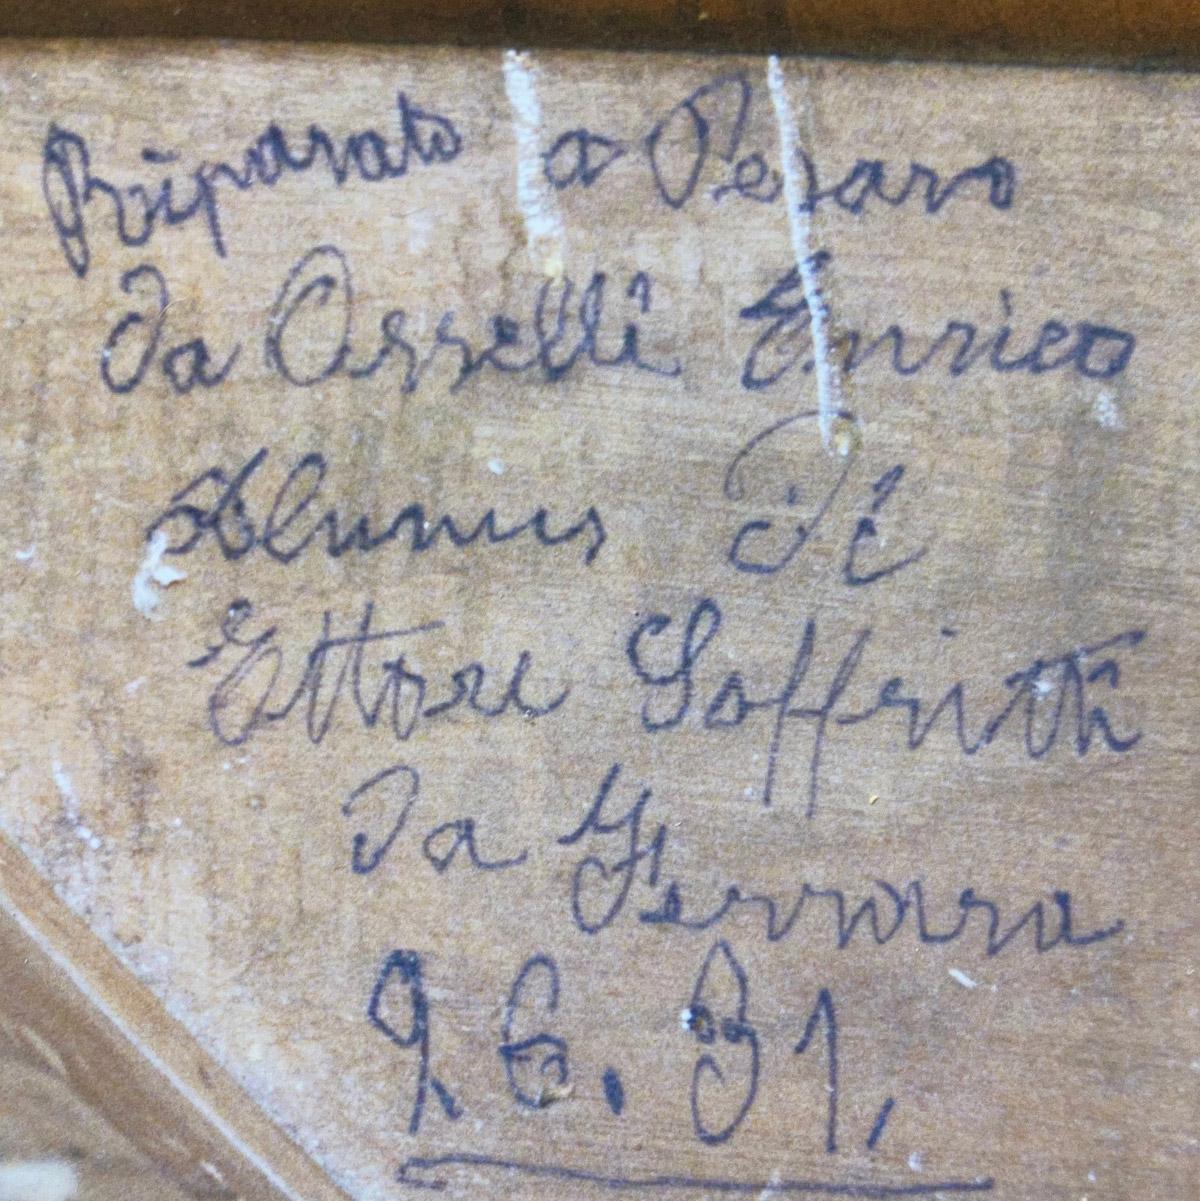 Riparato a Pesaro
Da Osselli Enrico
Alunnus Di
Ettore Soffritti
Da Ferrara